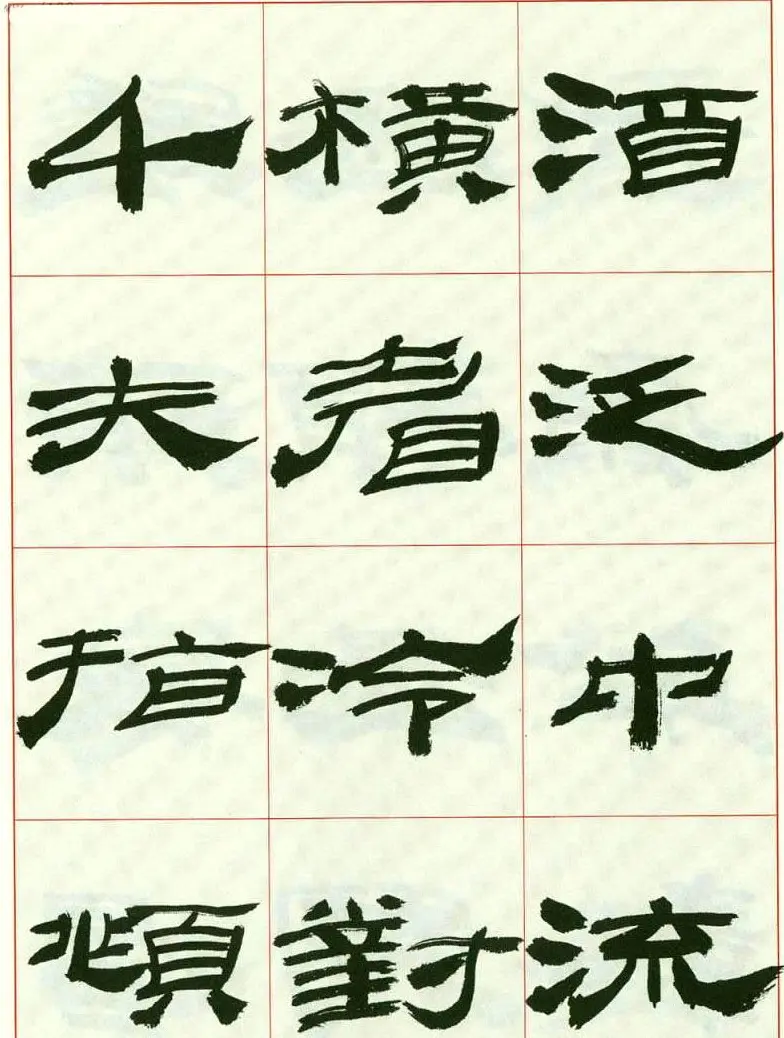 酒泛中流
橫眉冷對
千夫指頫